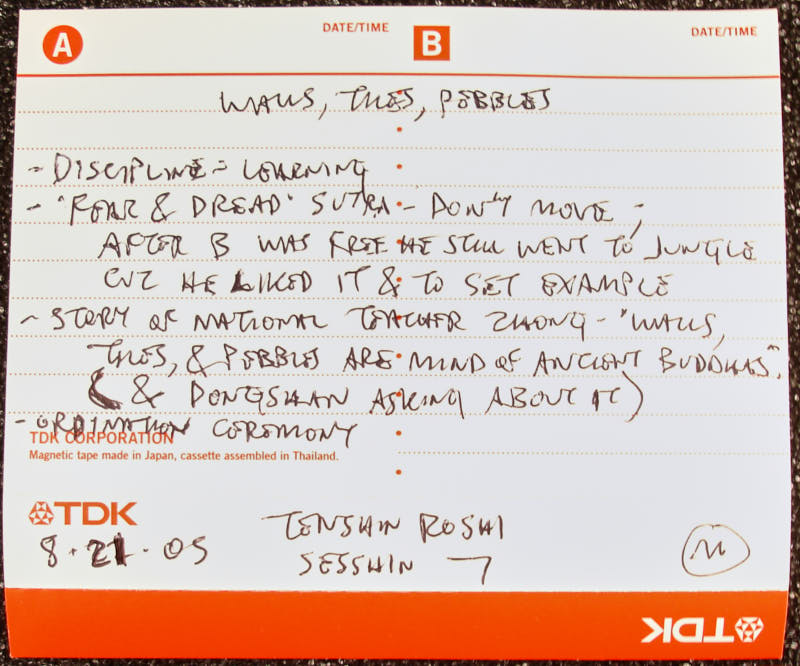 A DATE/TIME B DATE/TIME
WALLS, TILES, PEBBLES
- DISCIPLINE = LEARNING
- "FEAR & DREAD" SUTRA - DON'T MOVE;
AFTER B WAS FREE HE STILL WENT TO JUNGLE
CUZ HE LIKED IT & TO SET EXAMPLE
- STORY OF NATIONAL TEACHER ZHONG - "WALLS,
TILES, & PEBBLES ARE MIND OF ANCIENT BUDDHAS".
(& DONGSHAN ASKING ABOUT IT)
- ORDINATION CEREMONY
TDK CORPORATION
Magnetic tape made in Japan, cassette assembled in Thailand.
TDK
8.21.05
TENSHIN ROSHI
SESSHIN 7
M
TDK